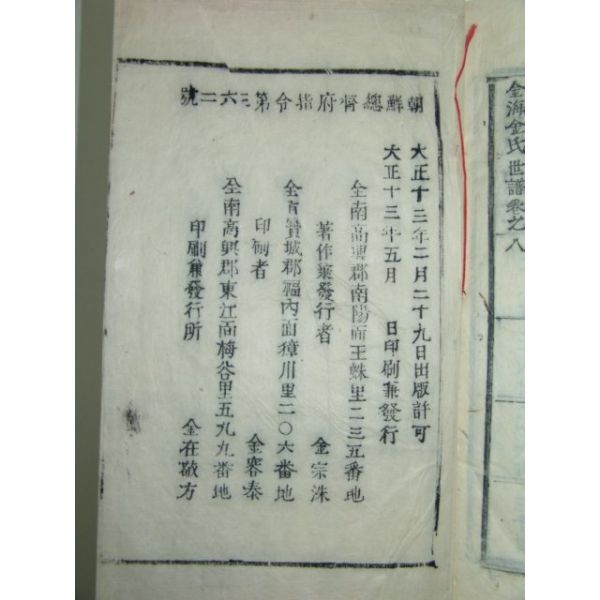 朝鮮總督府指令第三六二號
大正十三年二月二十九日出版許可
大正十三年五月　日印刷兼發行
全南高興郡南陽面王蛛里二三五番地
著作兼發行者　金宗洙
全南寶城郡福內面獐川里二〇六番地
印刷者　金容泰
全南高興郡東江面梅谷里五九九番地
印刷兼發行所　金在敬方
金海金氏世譜卷之八